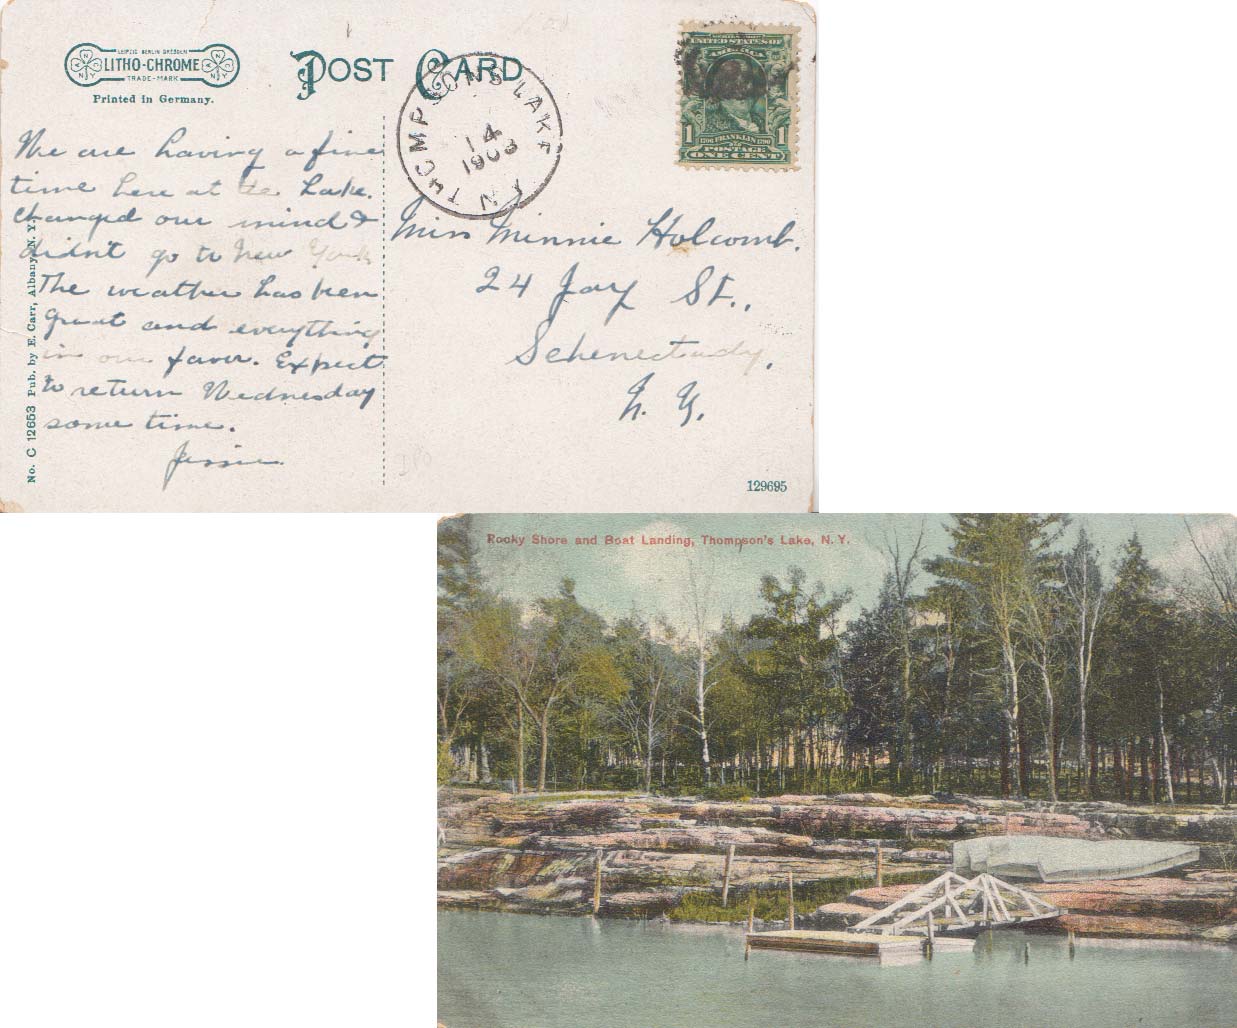 LEIPZIG BERLIN DRESDEN
LITHO-CHROME
TRADE-MARK
Printed in Germany.
POST CARD
THOMPSONS LAKE
N Y
14
1908
UNITED STATES OF
AMERICA
1 FRANKLIN 1
POSTAGE
ONE CENT
We are having a fine
time here at the Lake.
Changed our mind &
didn't go to New York
The weather has been
great and everything
in our favor. Expect
to return Wednesday
some time.
Jessie
Miss Minnie Holcomb.
24 Jay St.,
Schenectady,
N. Y.
No. C 12653 Pub. by E. Carr, Albany, N. Y.
129695
Rocky Shore and Boat Landing, Thompson's Lake, N. Y.